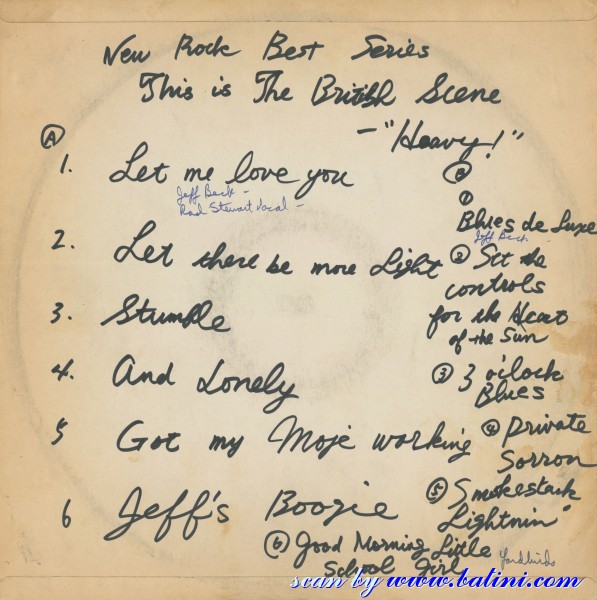 New Rock Best Series
This is The British Scene
— "Heavy!"
A
1. Let me love you
Jeff Beck -
Rod Stewart Vocal -
2. Let there be more Light
3. Stumble
4. And Lonely
5 Got my Moje working
6 Jeff's Boogie
B
① Blues de Luxe
Jeff Beck -
② Set the
controls
for the Heart
of the Sun
③ 3 o'clock
Blues
④ Private
Sorron
⑤ Smokestack
Lightnin"
⑥ Good Morning Little
School Girl
Yardbirds
scan by www.batini.com